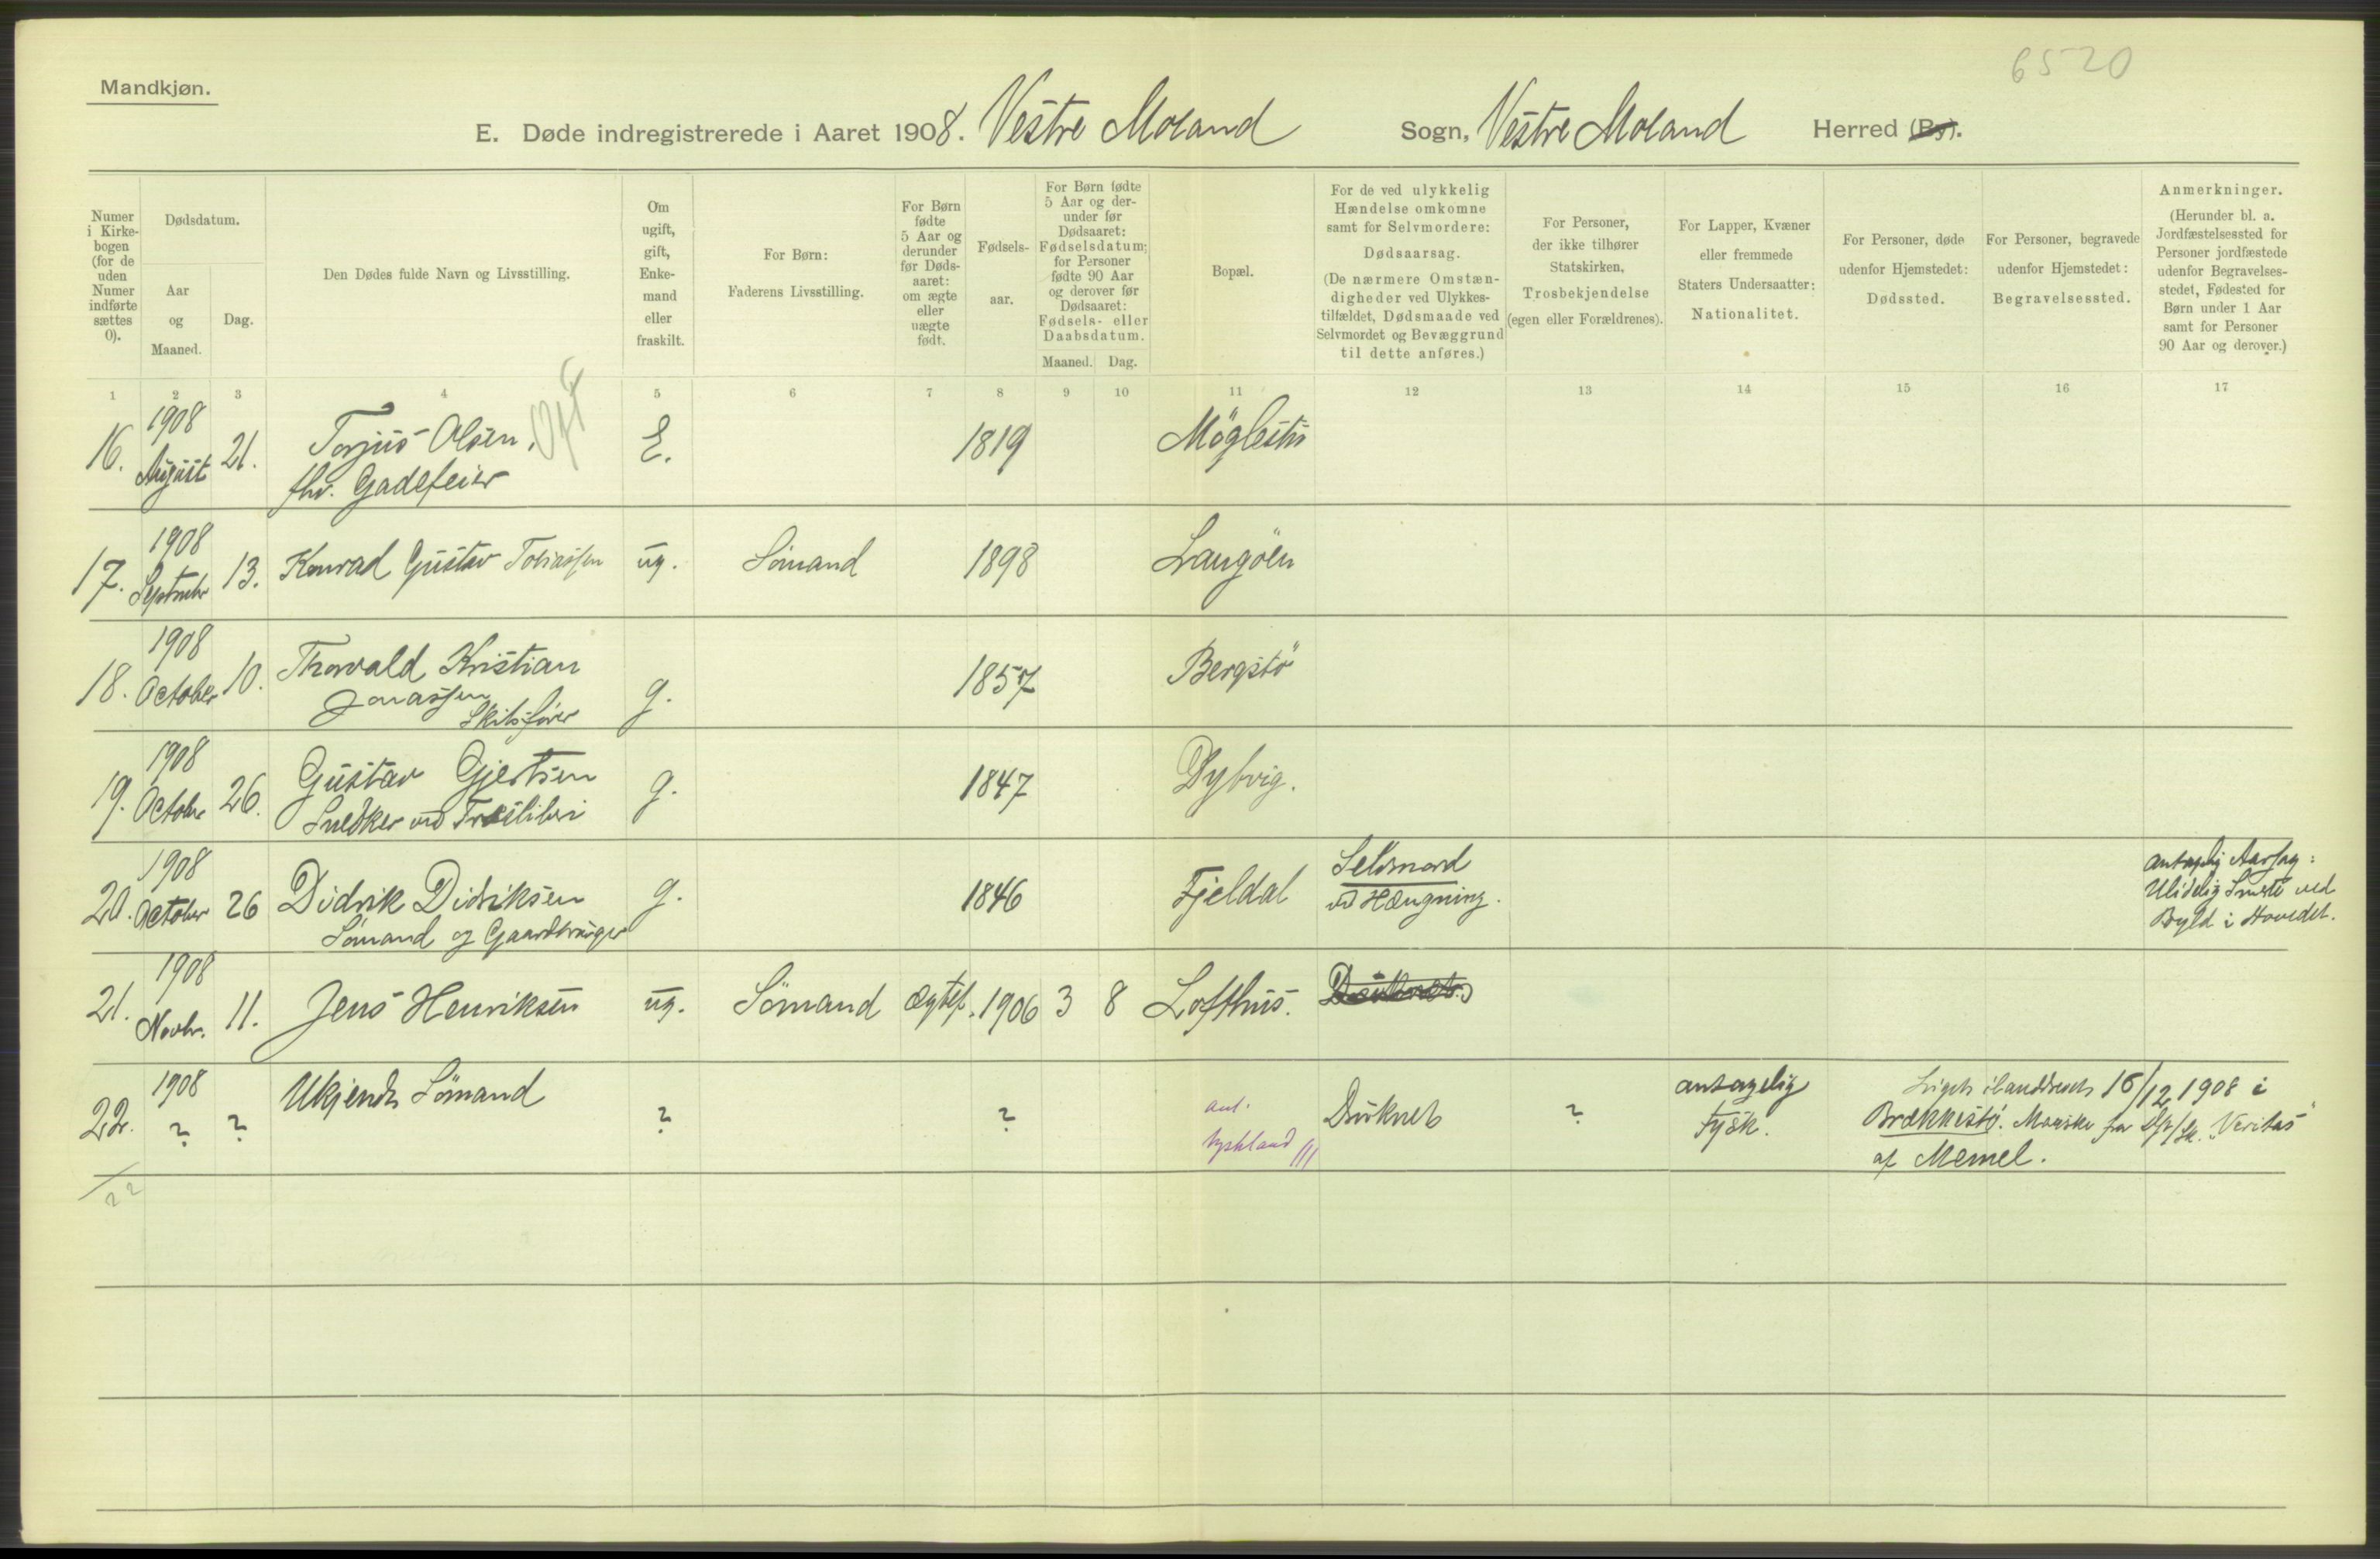 6520
Mandkjøn.
E. Døde indregistrerede i Aaret 1908. Vestre Moland Sogn, Vestre Moland Herred (By).
Numer i Kirke-bogen (for de uden Numer indførte sættes 0).
Dødsdatum.
Aar og Maaned.
Dag.
Den Dødes fulde Navn og Livsstilling.
Om ugift, gift, Enke-mand eller fraskilt.
For Børn: Faderens Livsstilling.
For Børn fødte 5 Aar og derunder før Døds-aaret: om ægte eller uægte født.
Fødsels-aar.
For Børn fødte 5 Aar og der-under før Dødsaaret: Fødselsdatum; for Personer fødte 90 Aar og derover før Dødsaaret: Fødsels- eller Daabsdatum.
Maaned. Dag.
Bopæl.
For de ved ulykkelig Hændelse omkomne samt for Selvmordere: Dødsaarsag. (De nærmere Omstæn-digheder ved Ulykkes-tilfældet, Dødsmaade ved Selvmordet og Bevæggrund til dette anføres.)
For Personer, der ikke tilhører Statskirken, Trosbekjendelse (egen eller Forældrenes).
For Lapper, Kvæner eller fremmede Staters Undersaatter: Nationalitet.
For Personer, døde udenfor Hjemstedet: Dødssted.
For Personer, begravede udenfor Hjemstedet: Begravelsessted.
Anmerkninger. (Herunder bl. a. Jordfæstelsessted for Personer jordfæstede udenfor Begravelses-stedet, Fødested for Børn under 1 Aar samt for Personer 90 Aar og derover.)
1 2 3 4 5 6 7 8 9 10 11 12 13 14 15 16 17
16. 1908 August 21. Torjus Olsen, E. 1819
fhv. Gadefeier
17. 1908 Septembr 13. Konrad Gustav Tobiassen ug. Sömand 1898 Langöen
18. 1908 October 10. Thorvald Kristian g. 1857 Bergstö
Jonassen
Skibsfører
19. 1908 Octobr 26. Gustav Gjertsen g. 1847 Dybvig.
Snedker
20. 1908 October 26 Didrik Didriksen g. 1846 Fjeldal Selvmord
Sömand og Gaardbruger
ved Hængning.
antagelig Aarsag:
Ulidelig Smerte ved
Byld i Hovedet.
21. 1908 Novbr. 11. Jens Henriksen ug. Sömand ægtef. 1906 3 8 Lofthus. Druknet
22. 1908 ? ? Ukjendt Sömand ? ? ant. Tyskland Druknet ? antagelig Tysk.
Liget ilanddrevet 16/12 1908 i
Brækkestö. Maaske fra "Veritas"
af Memel.
22